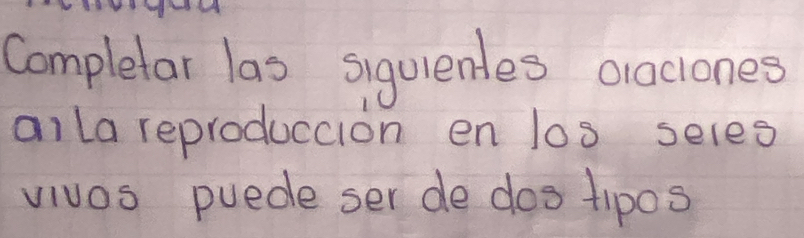 Completar las siguientes oraciones
a) La reproducción en los seres
vivos puede ser de dos tipos